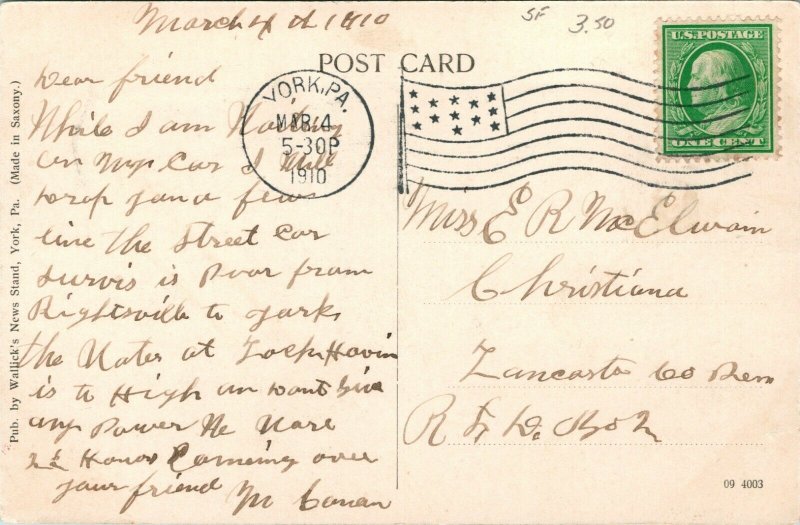 March 4 th 1910
SF 3.50
POST CARD
U.S. POSTAGE
ONE CENT
YORK, PA.
MAR. 4
5-30P
1910
Pub. by Wallick's News Stand, York, Pa. (Made in Saxony.)
Dear friend
While I am
on My Car I Will
Drop you a few
line the Street Car
Survis is Poor from
Rightsville to York
the Water at Lock Havin
is to High an Wont Give
any Power
Coming over
your friend M
Miss E R McElwain
Christiana
Lancaster Co Penn
R F D. Box
09 4003